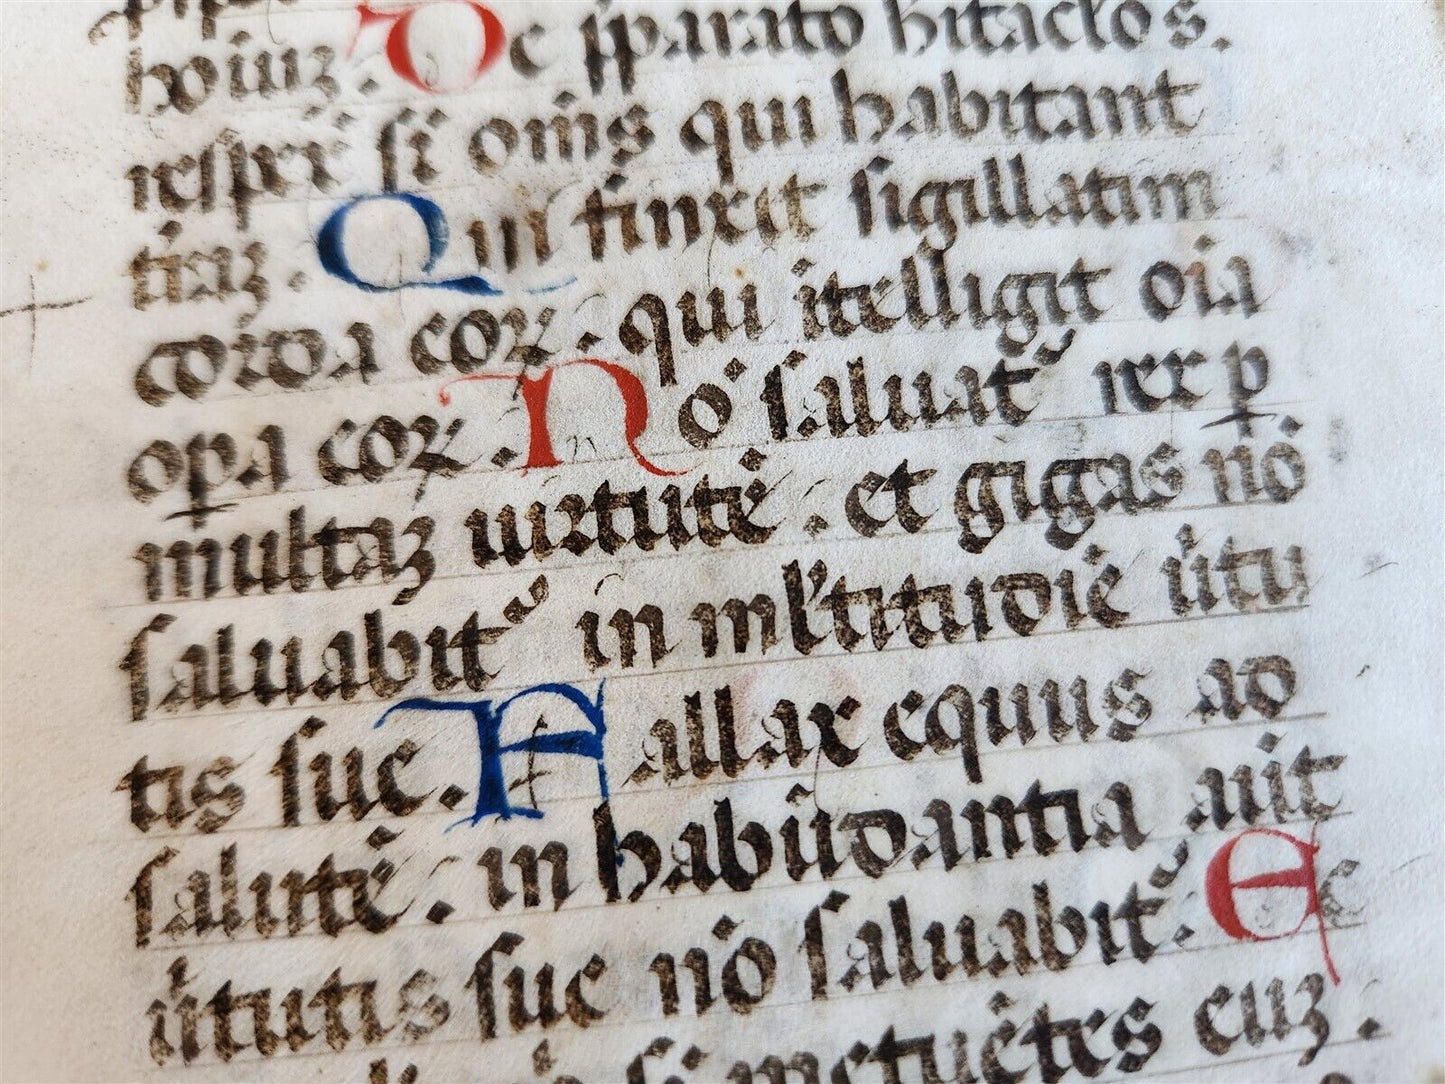 hoīuꝫ. De p̄parato h̄itac̄lo s.
respex̄ sī om̄s qui habitant
tīraꝫ. Qui finxit sigillatim
corda coꝝ. qui ītelligit oīa
opꝑa coꝝ. Nō saluat᷑ rex ꝑ
multaꝫ uirtutē. et gigas nō
saluabit᷑ in ml̓titudīe ūtu
tis sue. Fallax equus ad
salutē. in habūdantia aūt
ūtutis sue nō saluabit᷑. Ec
metuētes euꝫ.